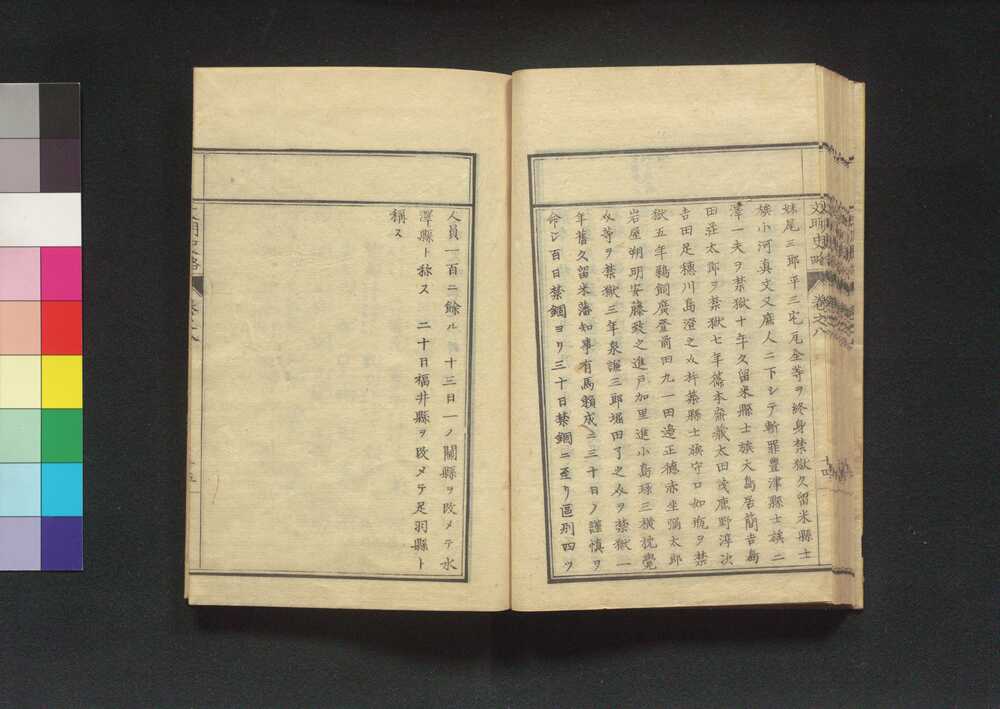 文明史略 卷之八 十四
妹尾三郎平三宅瓦全等ヲ終身禁獄久留米縣士
族小河真文又庶人ニ下シテ斬罪豐津縣士族二
澤一夫ヲ禁獄十年久留米縣士族大島居簡吉島
田莊太郎ヲ禁獄七年篠本齋藏太田茂鹿野淳次
吉田足穗川島澄之助杵築縣士族守口如瓶ヲ禁
獄五年鵜飼廣登前田九一田邊正德赤坐彌太郎
岩屋朔明安藤致之進戸加里進小島琢三横枕覺
助等ヲ禁獄三年泉謙三郎堀田了之助ヲ禁獄一
年舊久留米藩知事有馬頼成ニ三十日ノ謹慎ヲ
命シ百日禁錮ヨリ三十日禁錮ニ至リ區別四ツ
人員一百ニ餘ル 十三日一ノ關縣ヲ改メテ水
澤縣ト称ス 二十日福井縣ヲ改メテ足羽縣ト
稱ス